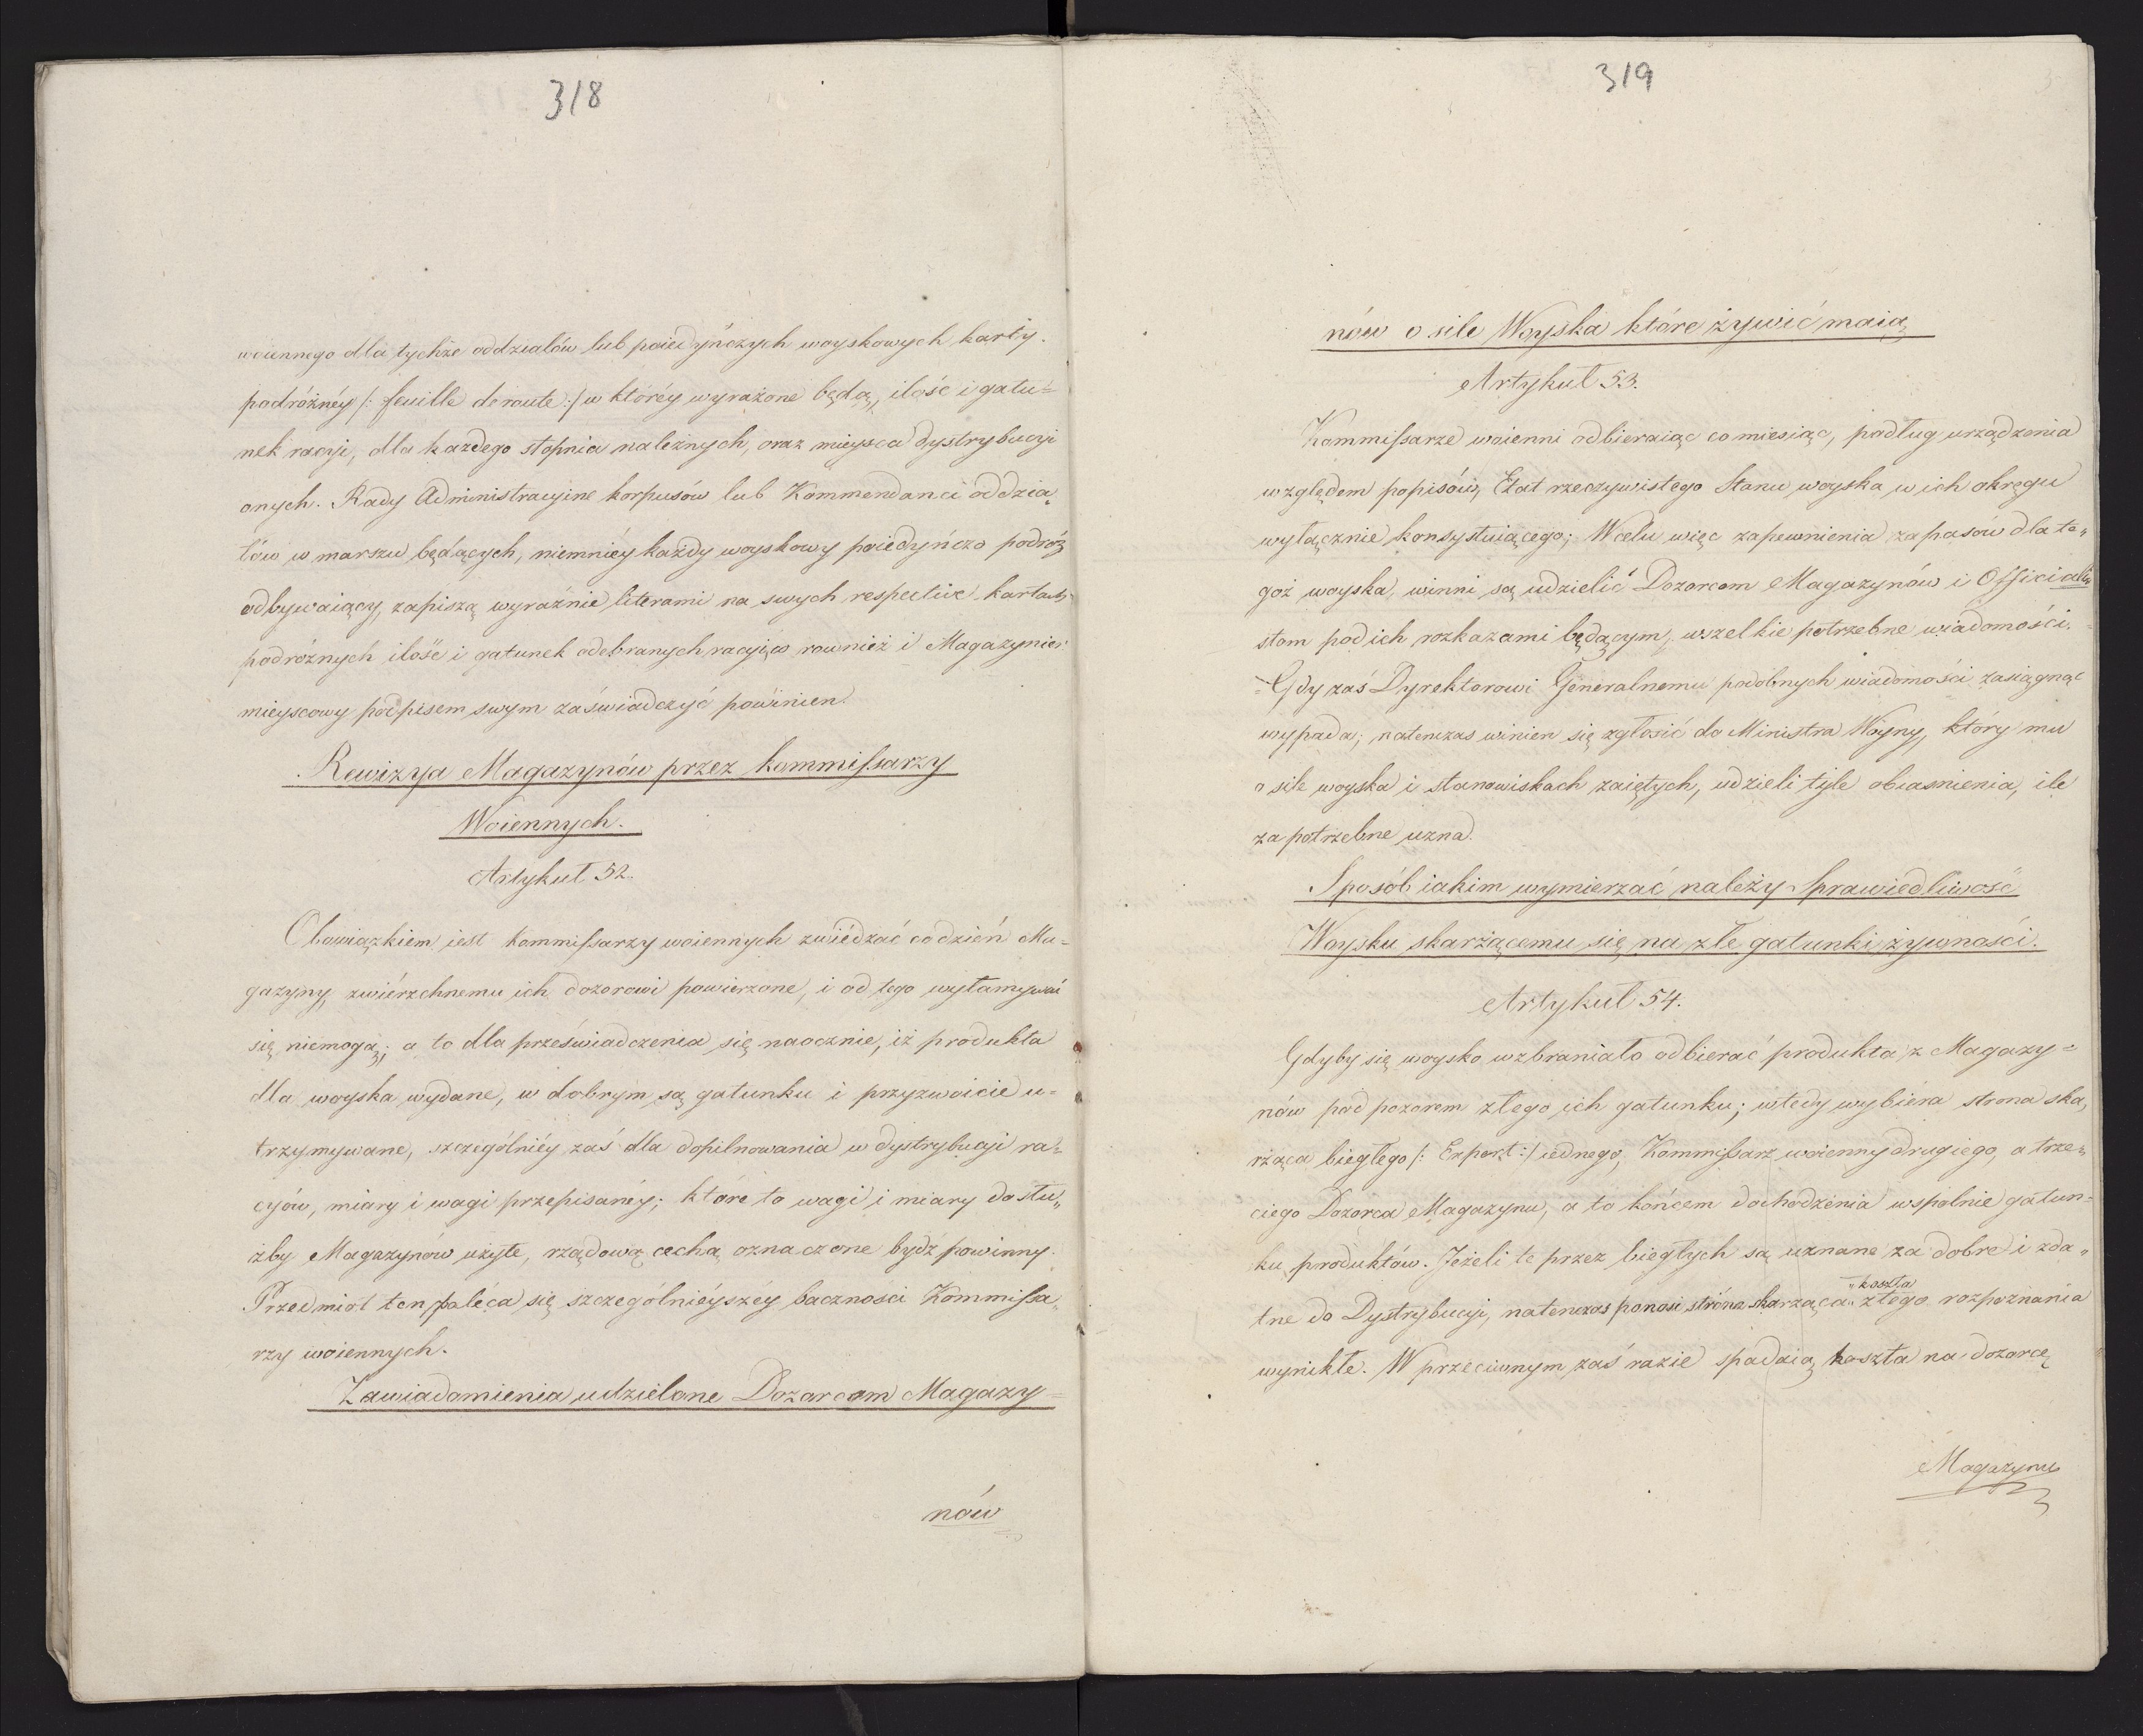 318
woiennego dla tychże oddziałów lub poiedyńczych woyskowych karty
podróżnéy /: feuille de route :/ w któréy wyrażone będą, ilość i gatu=
nek racyi, dla każdego stopnia należnych, oraz mieysca dystrybucyi
onych. Rady Administracyine korpusów lub Kommendanci oddzia„
łów w marszu będących, niemniéy każdy woyskowy poiedyńczo podróż
odbywaiący, zapiszą wyraźnie literami na swych respective kartach
podróżnych ilość i gatunek odebranych racyi, co rownież i Magazynier
mieyscowy podpisem swym zaświadczyć powinien.
Rewizya Magazynów przez kommißarzy
Woiennych.
Artykuł 52.
Obowiązkiem iest kommißarzy woiennych zwiédzać co dzień Ma=
gazyny, zwiérzchnemu ich dozorowi powierzone, i od tego wyłamywać
się niemogą; a to dla przeświadczenia się naocznie, iż produkta
dla woyska wydane, w dobrym są gatunku i przyzwoicie u=
trzymywane, szczególniéy zaś dla dopilnowania w dystrybucyi ra=
cyów, miary i wagi przepisanéy; które to wagi i miary do słu„
żby Magazynów użyte, rządową cechą oznaczone bydź powinny.
Przedmiot ten poleca się szczególniéyszéy baczności Kommißa„
rzy woiennych.
Zawiadomienia udzielone Dozorcom Magazy=
nów
319
nów o sile Woyska które żywić maią
Artykuł 53.
Kommißarze woienni odbieraiąc co miesiąc, podług urządzenia
względem popisów, Etat rzeczywistego Stanu woyska w ich okręgu
wyłącznie konsystuiącego; W celu więc zapewnienia zapasow dla te„
goż woyska, winni są udzielić Dozorcom Magazynów i Officiali„
stom pod ich rozkazami będącym, wszelkie potrzebne wiadomości.
Gdy zaś Dyrektorowi Generalnemu podobnych wiadomości zasiągnąć
wypada; natenczas winien się zgłosić do Ministra Woyny, który mu
o sile woyska i stanowiskach zaiętych, udzieli tyle obiasnienia, ile
za potrzebne uzna.
Sposób iakim wymierzać należy Sprawiedliwość
Woysku skarżącemu się na złe gatunki żywności.
Artykuł 54.
Gdyby się woysko wzbraniało odbierać produkta z Magazy=
nów pod pozorem złego ich gatunku; wtedy wybiéra strona ska„
rżąca biegłego /: Expert :/ iednego, Kommißarz woienny drugiego, a trze„
ciego Dozorca Magazynu, a to końcem dochodzenia wspolnie gatun=
ku produktów. Jeżeli te przez biegłych są uznane za dobre i zda„
„koszta
tne do Dystrybucyi, natenczas ponosi strona skarżąca„ złego rozpoznania
wynikłe. W przeciwnym zaś razie spadaią koszta na dozorcę
Magazynu